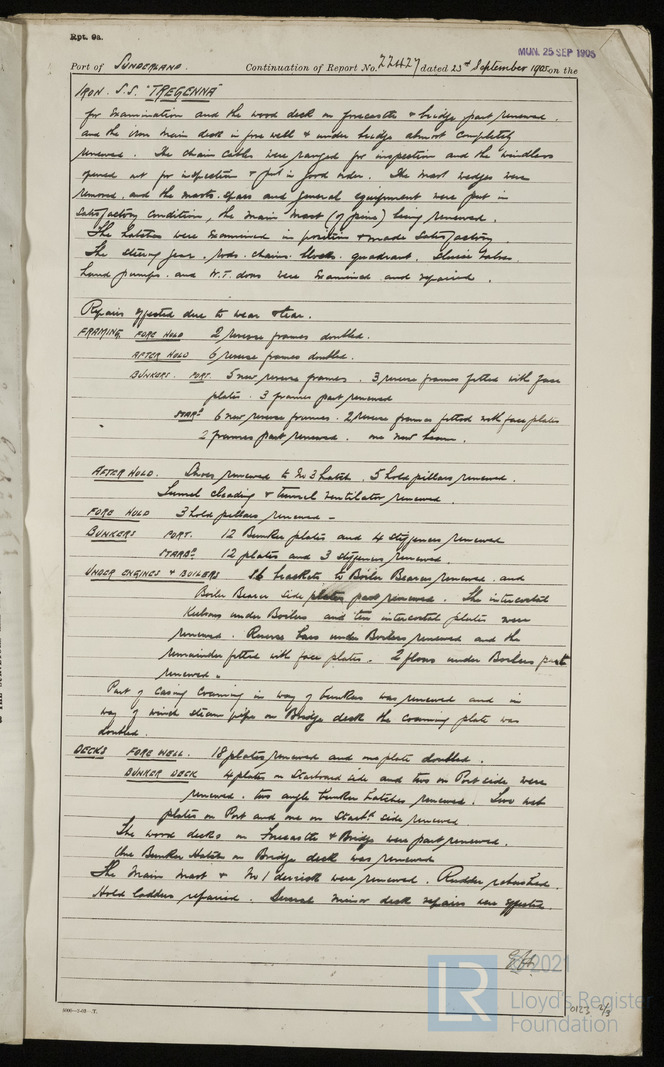 Rpt. 9a.
MUN. 25 SEP 1905
Port of SUNDERLAND. Continuation of Report No. 22427 dated 23rd September 1905 on the
IRON S.S. "TREGENNA"
for examination and the wood deck on forecastle & bridge part renewed.
and the iron main deck in fore well & under bridge almost completely
renewed. The chain cables were ranged for inspection and the windlass
opened out for inspection & put in good order. The mast wedges were
removed, and the masts, spars and general equipment were put in
satisfactory condition, the main mast (of pine) being renewed.
The hatches were examined in position & made satisfactory.
The steering gear, rods, chains, blocks, quadrant, sluice valves
hand pumps, and W.T. doors were examined and repaired.
Repairs effected due to wear & tear.
FRAMING. FORE HOLD 2 reverse frames doubled.
AFTER HOLD 6 reverse frames doubled.
BUNKERS. PORT. 5 new reverse frames. 3 reverse frames fitted with face
plates. 3 frames part renewed
STARBD 6 new reverse frames. 2 reverse frames fitted with face plates
2 frames part renewed. one new beam.
AFTER HOLD. renewed to No 3 hatch. 5 hold pillars renewed.
Tunnel cleading & tunnel ventilator renewed.
FORE HOLD 3 hold pillars renewed -
BUNKERS PORT. 12 Bunker plates and 4 stiffeners renewed
STARBD. 12 plates and 3 stiffeners renewed.
UNDER ENGINES & BOILERS 56 brackets to Boiler Bearers renewed. and
Boiler Bearer side plates part renewed. The intercostal
Keelsons under Boilers and ten intercostal plates were
renewed. Reverse bars under Boilers renewed and the
remainder fitted with face plates. 2 floors under Boilers part
renewed.
Part of casing coaming in way of bunkers was renewed and in
way of winch steam pipe on Bridge deck the coaming plate was
doubled.
DECKS FORE WELL. 18 plates renewed and one plate doubled.
BUNKER DECK 4 plates on Starboard side and two on Port side were
renewed. two angle bunker hatches renewed. Two
plates on Port and one on Starbd side renewed
The wood decks on Forecastle & Bridge were part renewed.
One Bunker Hatch on Bridge deck was renewed
The Main Mast & No 1 derrick were renewed. Rudder rebushed.
Hold ladders repaired. Several minor deck repairs were effected.
2021
LR
Lloyd's Register
Foundation
0123 2/3